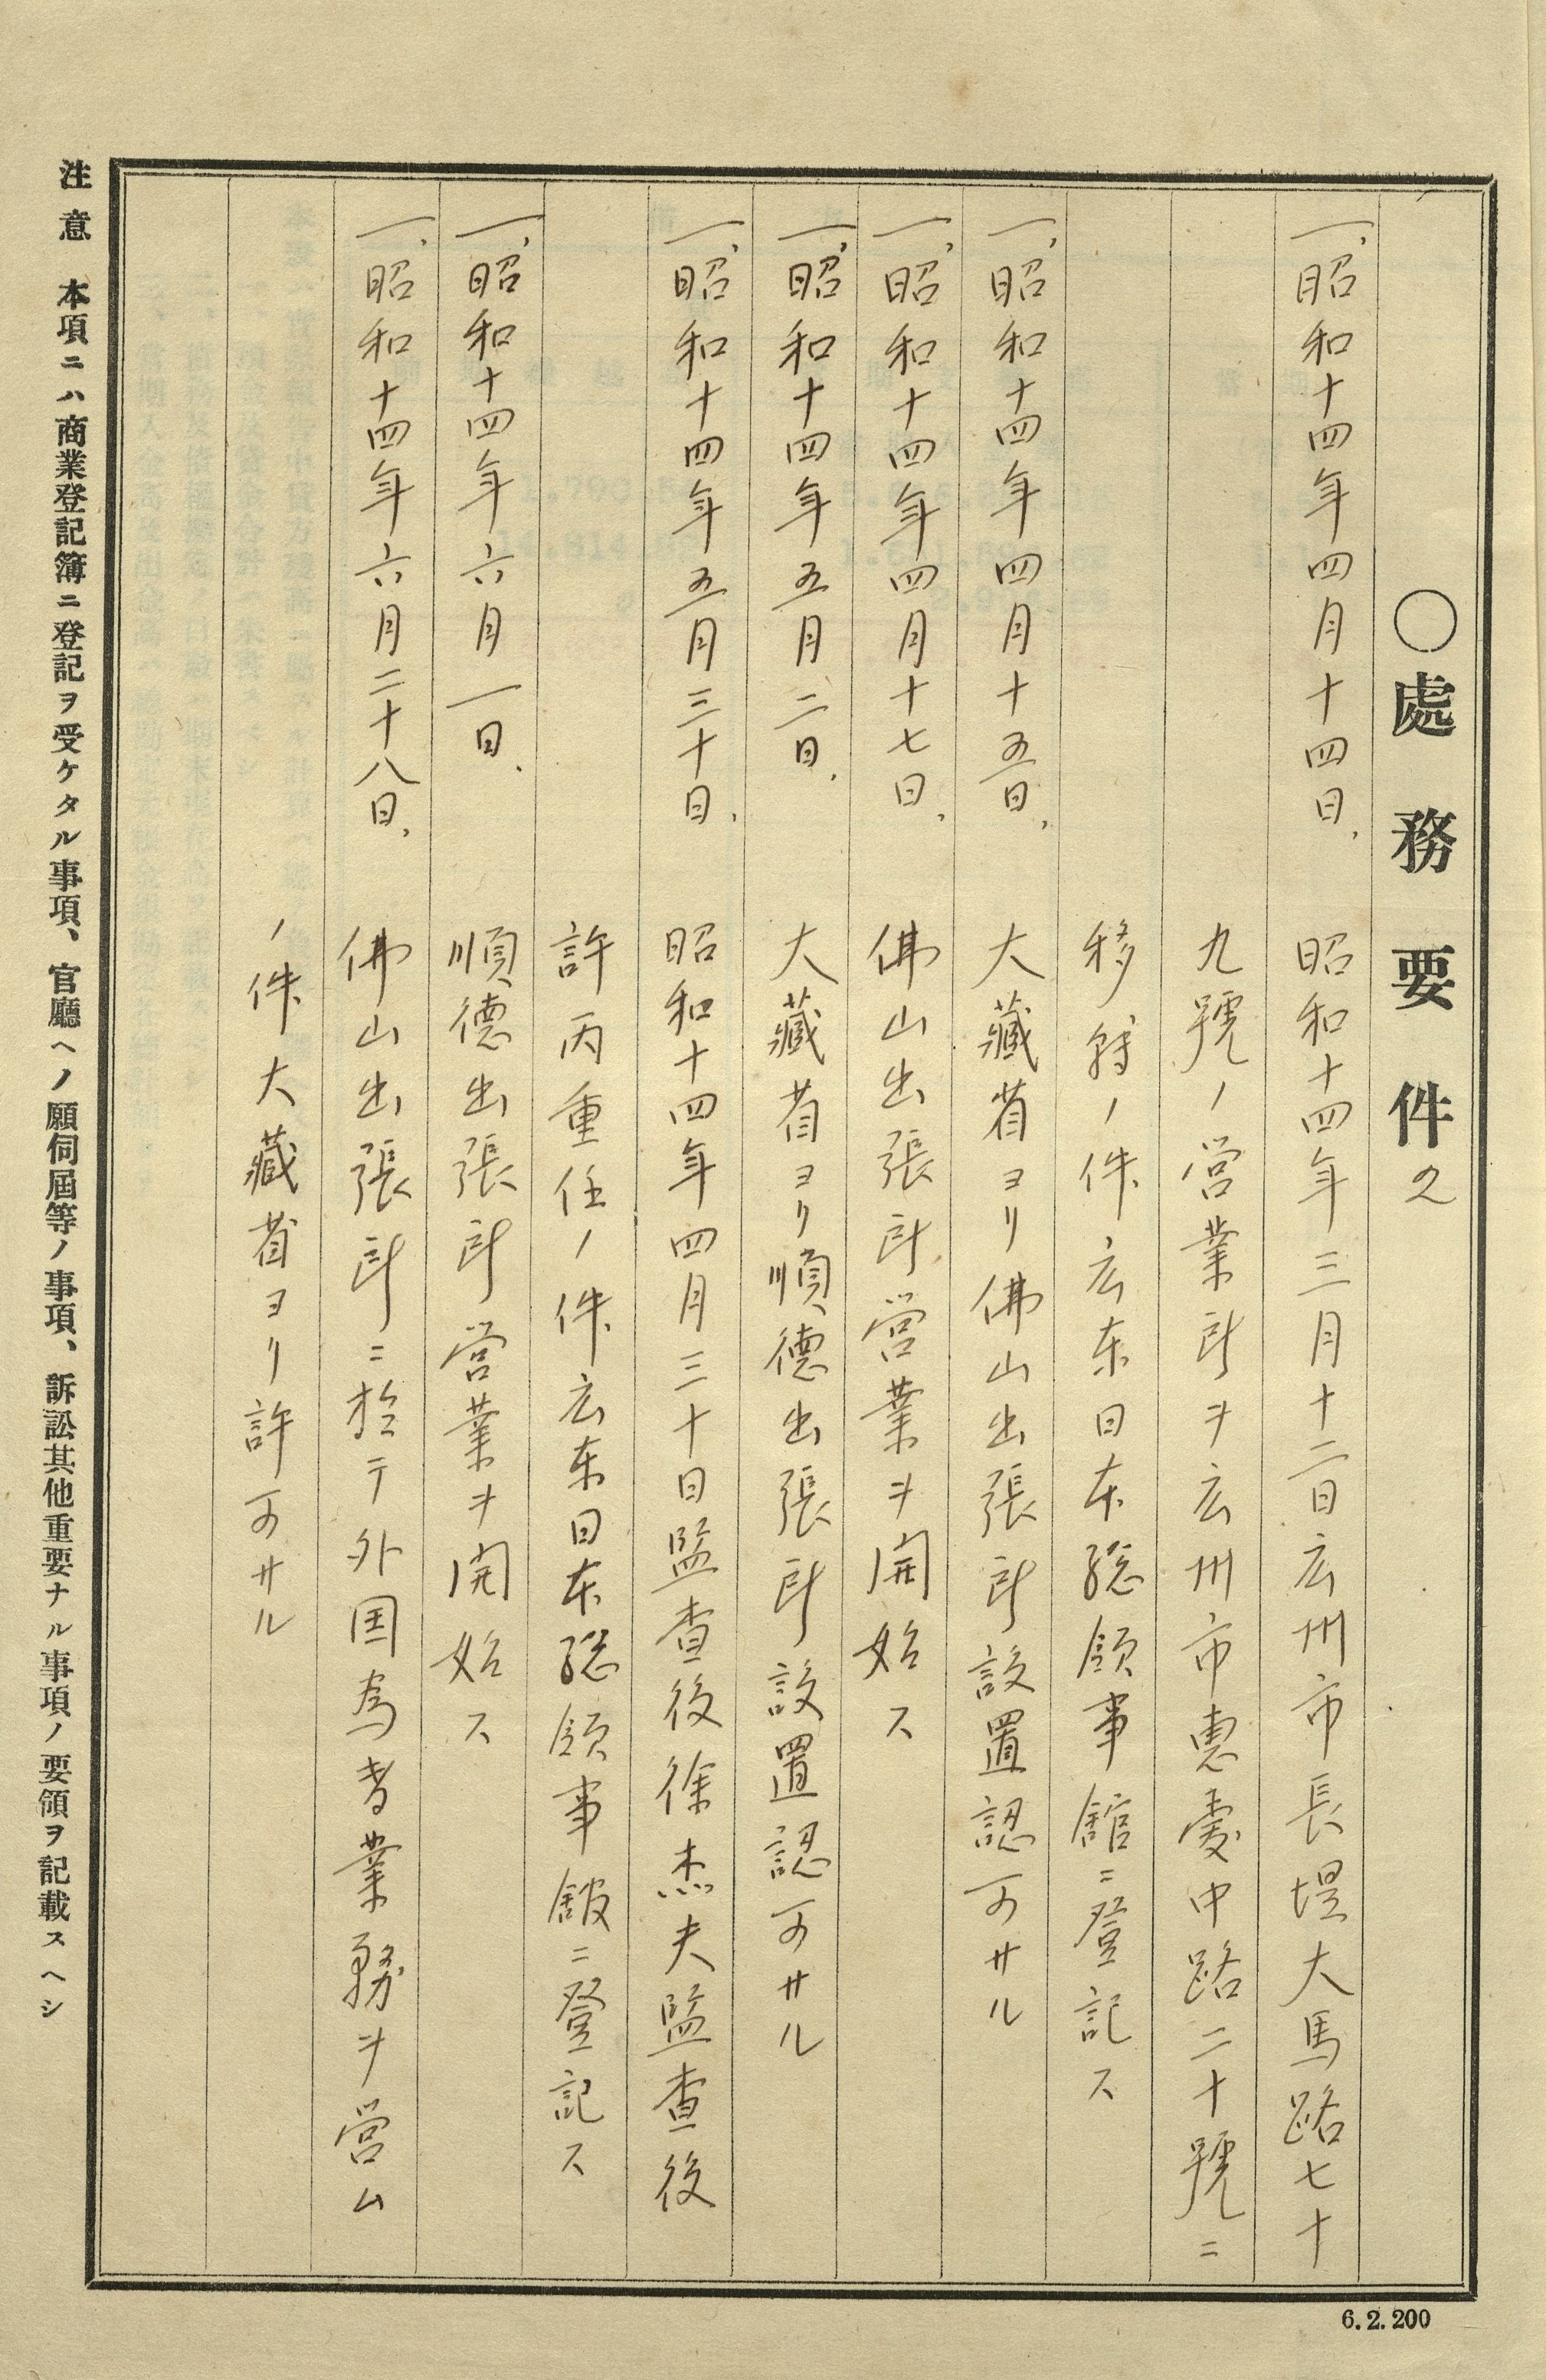 〇處務要件ノ2
一、昭和十四年四月十四日、 昭和十四年三月十二日広州市長堤大馬路七十
九號ノ営業所ヲ広州市惠愛中路二十號ニ
移轉ノ件広東日本総領事館ニ登記ス
一、昭和十四年四月十五日、 大藏省ヨリ佛山出張所設置認可サル
一、昭和十四年四月十七日、 佛山出張所営業ヲ開始ス
一、昭和十四年五月二日、 大藏省ヨリ順德出張所設置認可サル
一、昭和十四年五月三十日、 昭和十四年四月三十日監査後徐杰夫監査後
許丙重任ノ件広東日本総領事館ニ登記ス
一、昭和十四年六月一日、 順德出張所営業ヲ開始ス
一、昭和十四年六月二十八日、 佛山出張所ニ於テ外国為替業務ヲ営ム
ノ件大藏省ヨリ許可サル
注意 本項ニハ商業登記簿ニ登記ヲ受ケタル事項、官廳ヘノ願伺屆等ノ事項、訴訟其他重要ナル事項ノ要領ヲ記載スヘシ
6.2.200